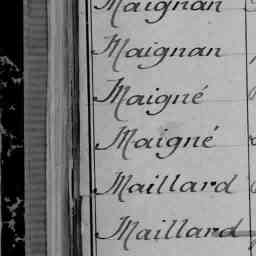 Maignan
Maignan
Maigné
Maigné
Maillard
Maillard